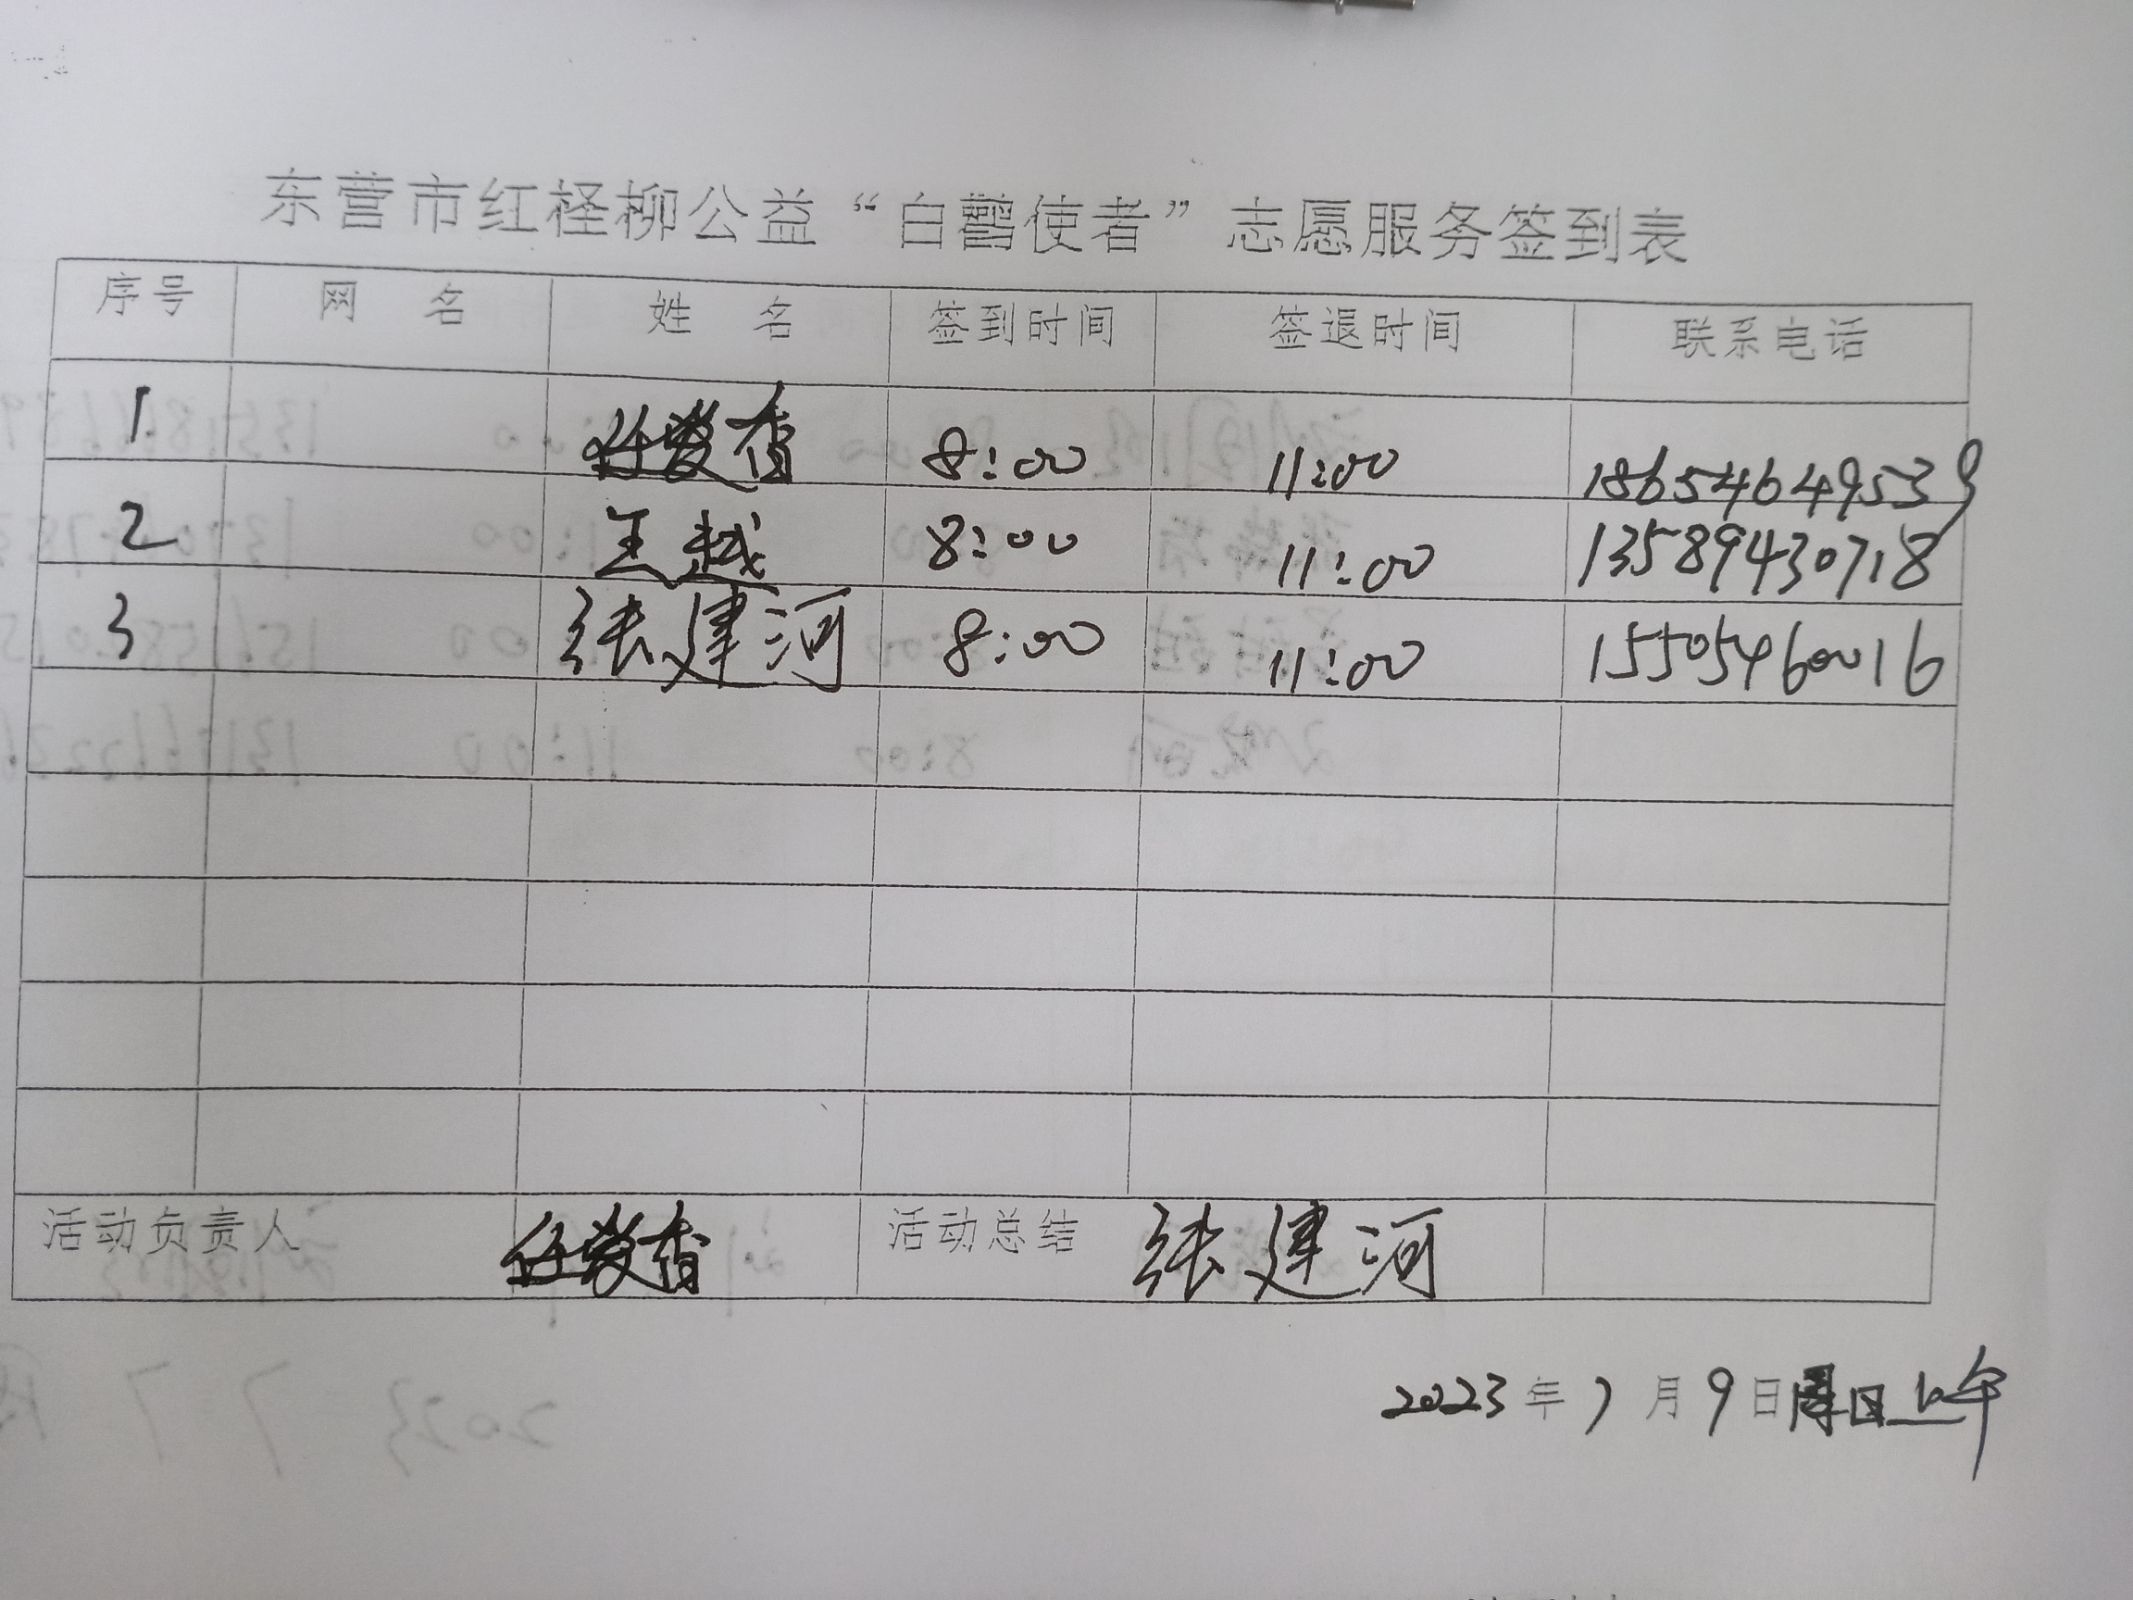 东营市红柽柳公益“白鹳使者”志愿服务签到表
序号 网 名 姓 名 签到时间 签退时间 联系电话
1 任爱香 8:00 11:00 18654649539
2 王越 8:00 11:00 13589430718
3 张建河 8:00 11:00 15505460016
活动负责人 任爱香 活动总结 张建河
2023年7月9日周日上午